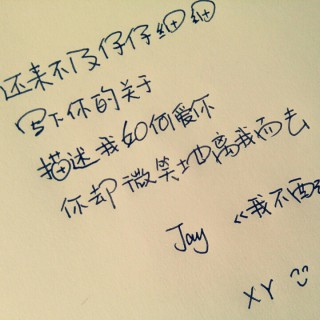 还来不及仔仔细细
写下你的关于
描述我如何爱你
你却微笑地离我而去
Jay 《我不配
XY